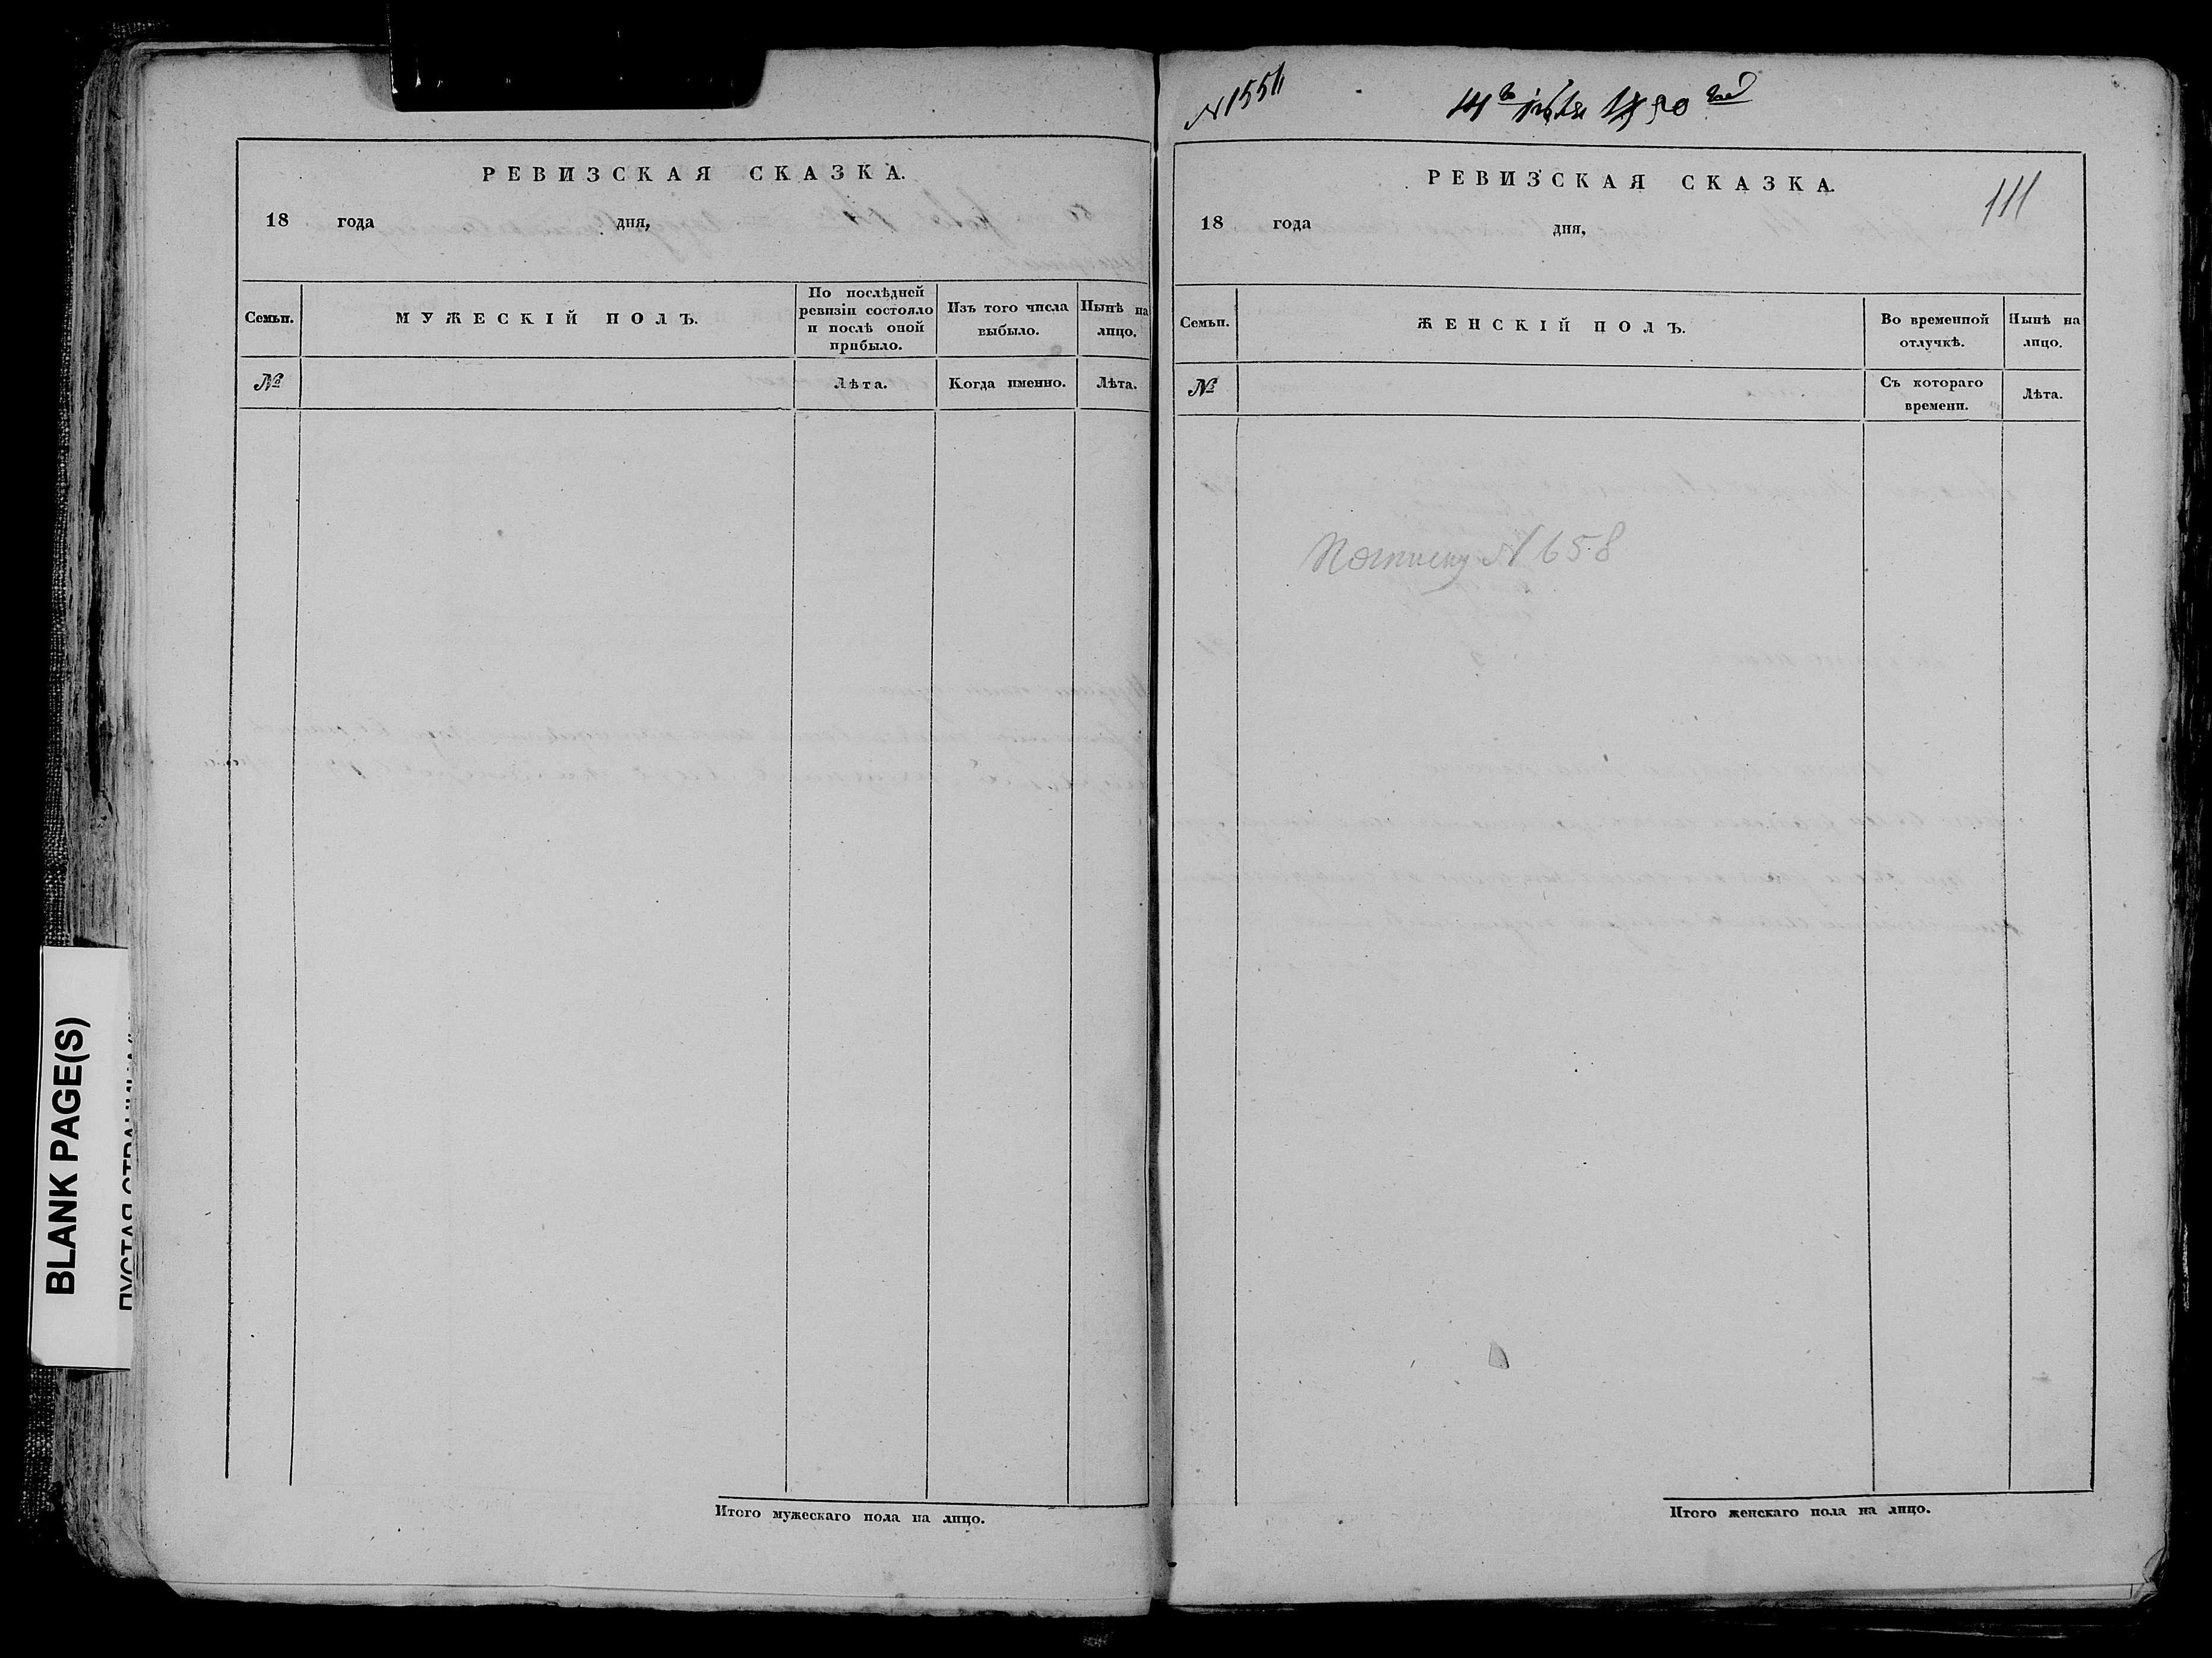 РЕВИЗСКАЯ СКАЗКА.
18 года дня,
Семьи. МУЖЕСКІЙ ПОЛЪ. По послѣдней ревизіи состояло и послѣ оной прибыло. Изъ того числа выбыло. Нынѣ на лицо.
№ Лѣта. Когда именно. Лѣта.
Итого мужескаго пола на лицо.
BLANK PAGE(S)
111
РЕВИЗСКАЯ СКАЗКА.
18 года дня,
Семьи. ЖЕНСКІЙ ПОЛЪ. Во временной отлучкѣ. Нынѣ на лицо.
№ Съ котораго времени. Лѣта.
N 658
Итого женскаго пола на лицо.